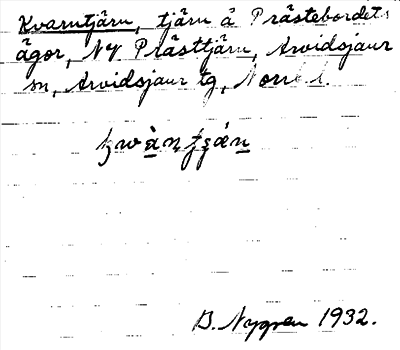 Kvarntjärn, tjärn å Prästebordets
ägor, NV Prästtjärn, Arvidsjaur
sn, Arvidsjaur tg, Norrb. l.
B. Nygren 1932.